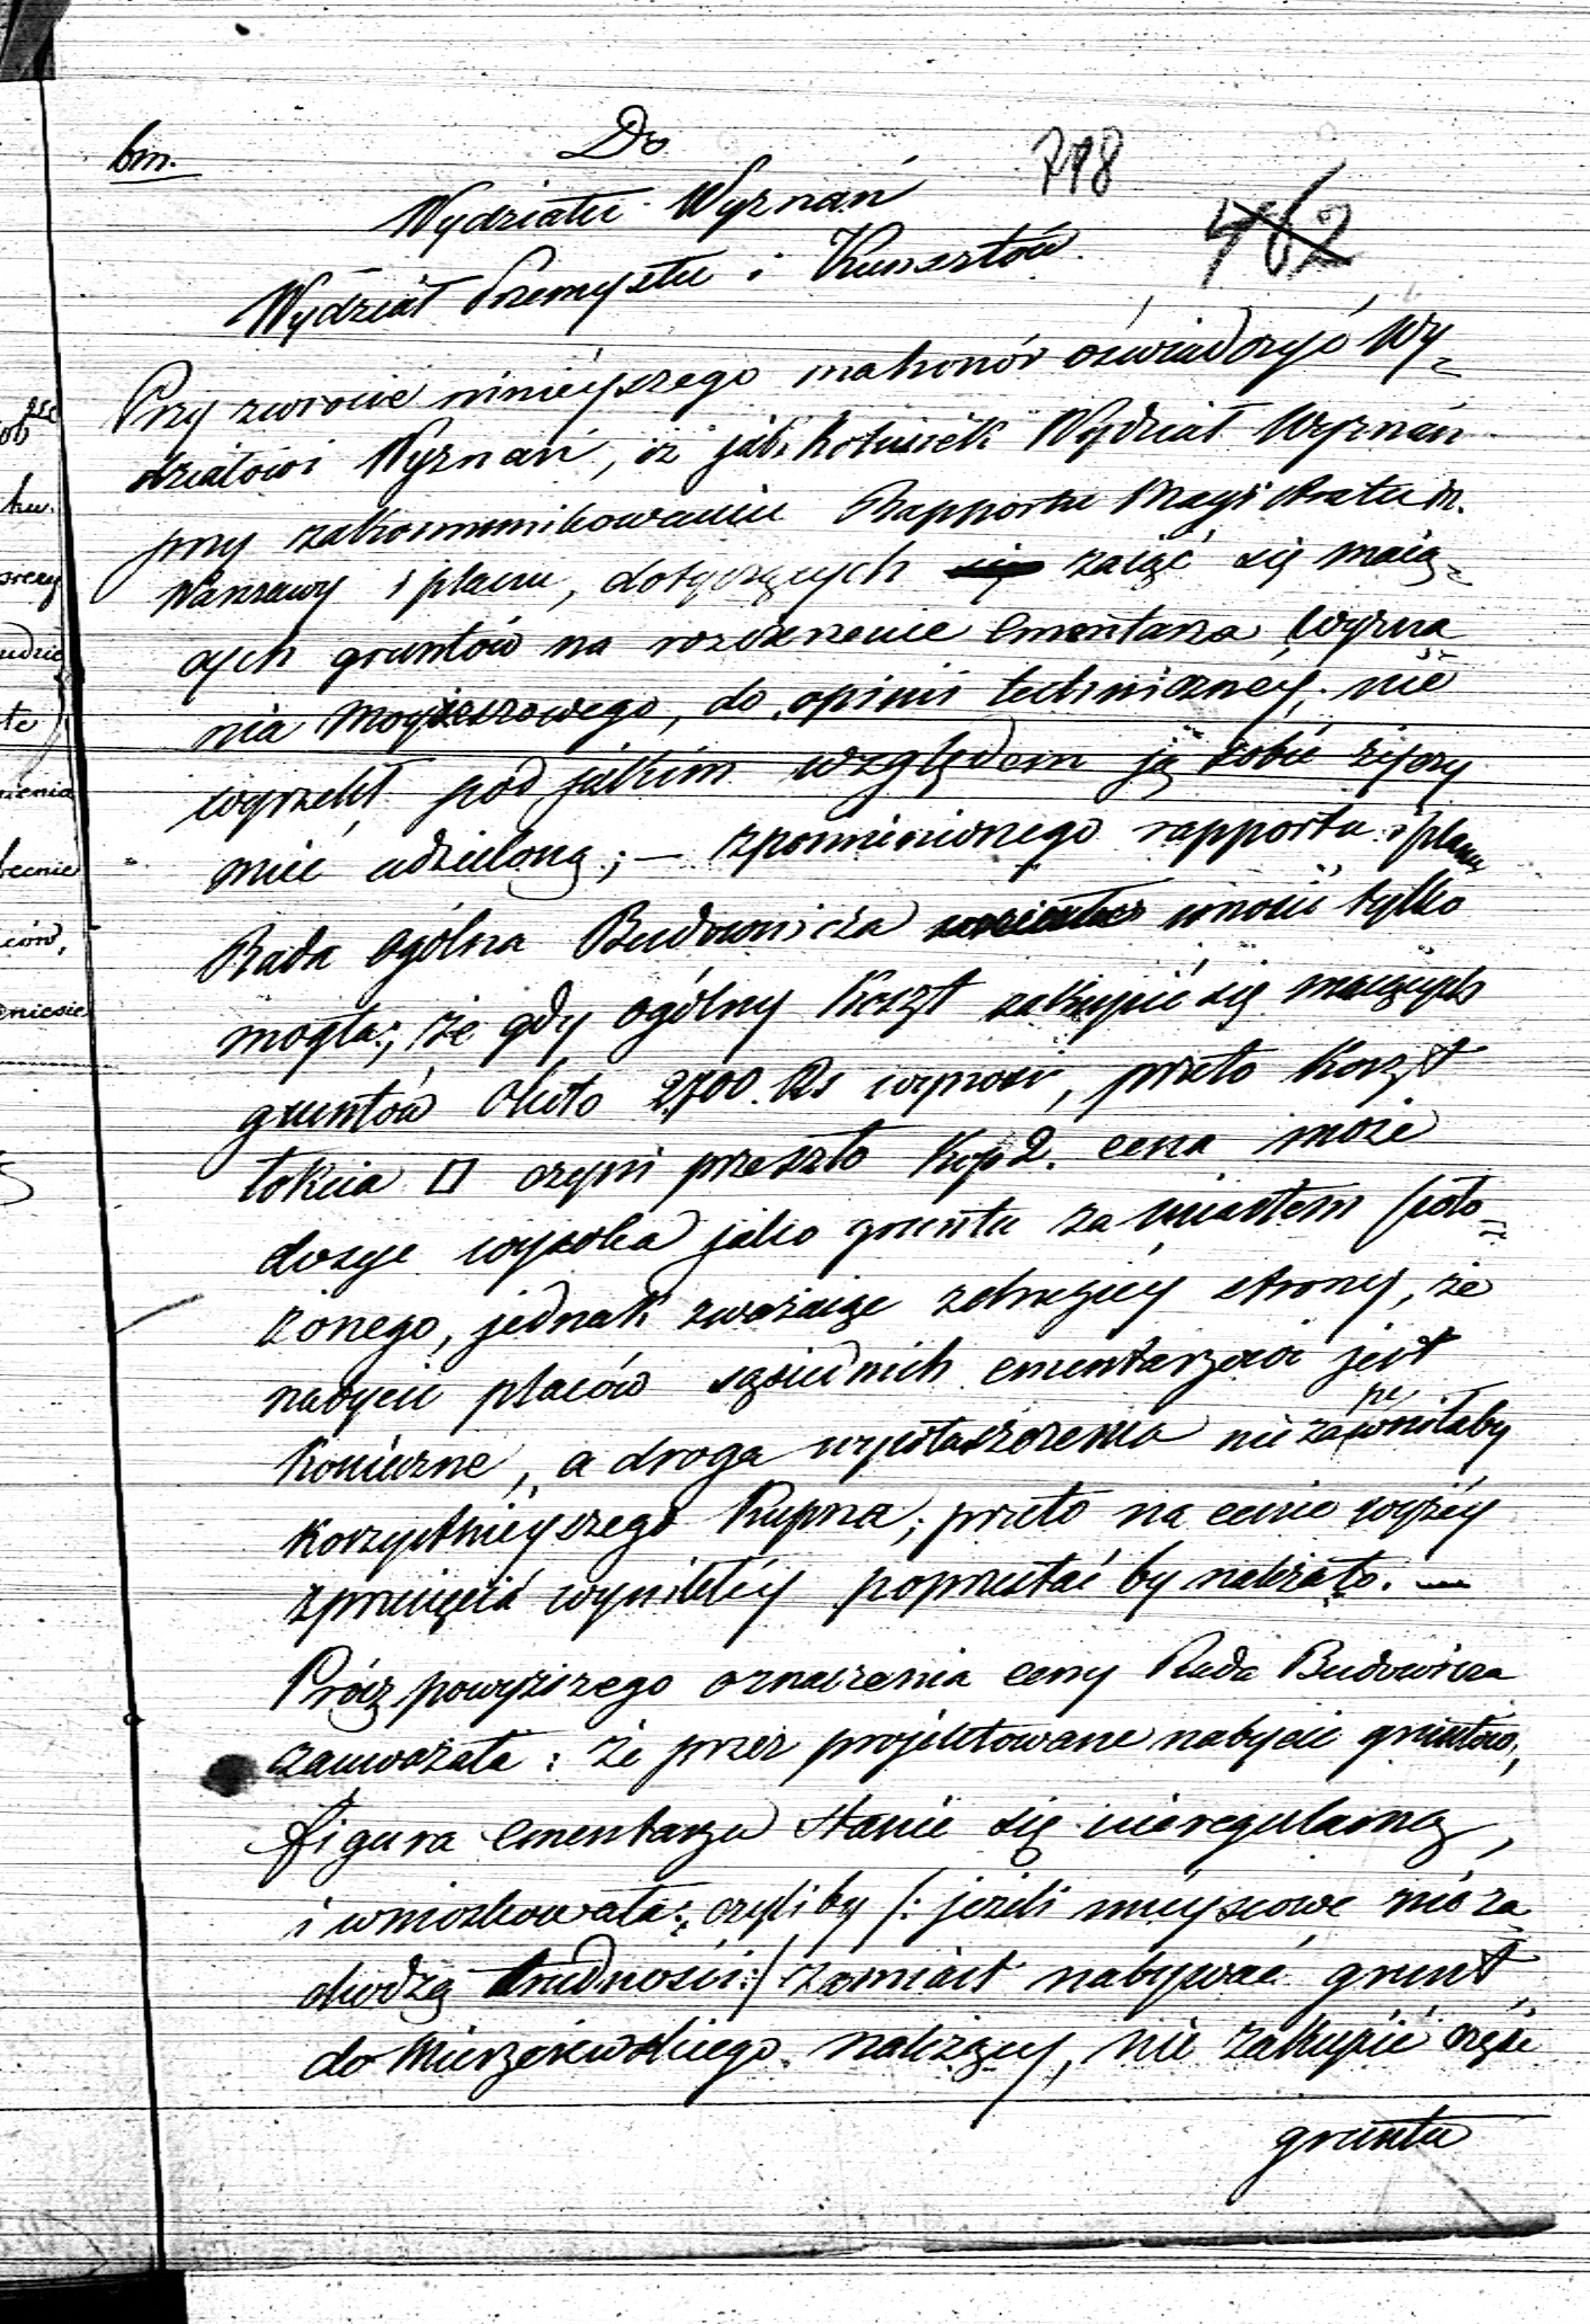 bm.
Do
718
462
Wydziału Wyznań
Wydział Przemysłu i Kunsztów.
Przy zwrocie ninieyszego ma honór oświadczyć Wy=
działowi Wyznań, iż jakkolwiek Wydział Wyznań
przy zakommunikowaniu Rapportu Magistratu M.
Warszawy i planu, dotyczących zająć się maią=
cych gruntów na rozszerzenie cmentarza wyzna=
nia Moyżeszowego, do opinii techniczney, nie
wyrzekł pod jakim względem ją sobie życzy
mieć udzieloną; — zpomnionego rapportu i planu
Rada Ogólna Budownicza wnosić tylko
mogła; że gdy ogólny koszt zakupić się maiących
gruntów około 2700 Rs wynosi, przeto koszt
łokcia □ czyni przeszło kop 2. cena może
dosyć wysoka jako gruntu za miastem poło=
żonego, jednak zważaiąc z drugiéy strony, że
nabycie placów sąsiednich cmentarzowi jest
konieczne, a droga wywłaszczenia nie zapewniłaby
korzystnieyszego kupna; przeto na cenie wyżéy
z przecięcia wynikłéy poprzestać by należało. —
Prócz powyższego oznaczenia ceny Rada Budownicza
zauważała: że przez projektowane nabycie gruntów,
figura cmentarza stanie się nieregularną,
i wnioskowała: czyliby /: jeżeli mieyscowe nie za=
chodzą trudności :/ zamiast nabywać grunt
do Mierzejewskiego należący, nie zakupić część
gruntu